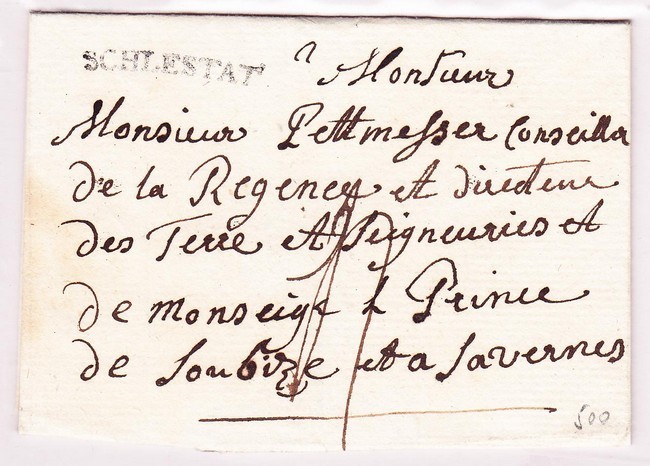 SCHLESTAT
a Monsieur
Monsieur Pettmesser Conseiller
de la Regencey et directeur
des Terre et Seigneuries et
de monseigr le Prince
de Soubize et a Savernes
500